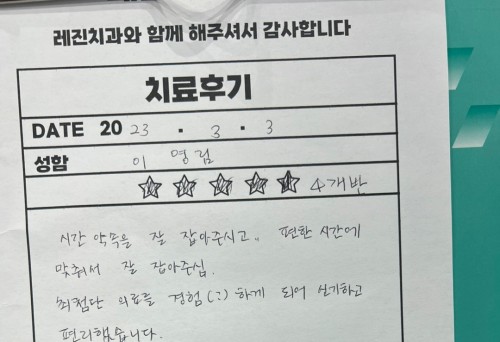 레진치과와 함께 해주셔서 감사합니다
치료후기
DATE 20 23 . 3 . 3
성함 이 명림
4개반
시간 약속을 잘 잡아주시고.. 편한 시간에
맞춰서 잘 잡아주심.
최첨단 의료를 경험(:) 하게 되어 신기하고
편리했습니다.